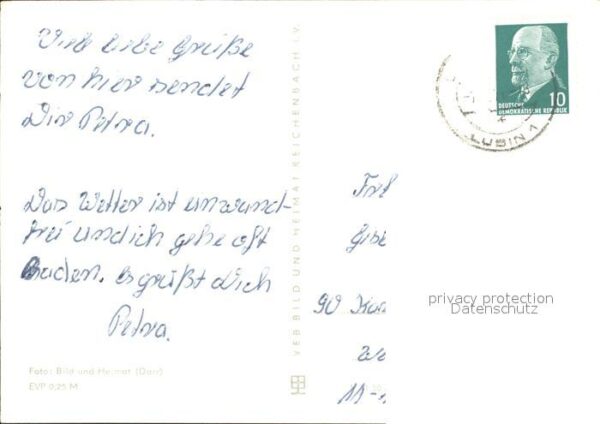 Viele liebe Grüße
von hier sendet
Dir Petra.
Das Wetter ist einwand-
frei und ich gehe oft
Baden. Es grüßt dich
Petra.
Foto: Bild und Heimat (Darr)
EVP 0,25 M
VEB BILD UND HEIMAT REICHENBACH I. V.
DEUTSCHE
DEMOKRATISCHE REPUBLIK
10
LUBIN 1
90
privacy protection
Datenschutz